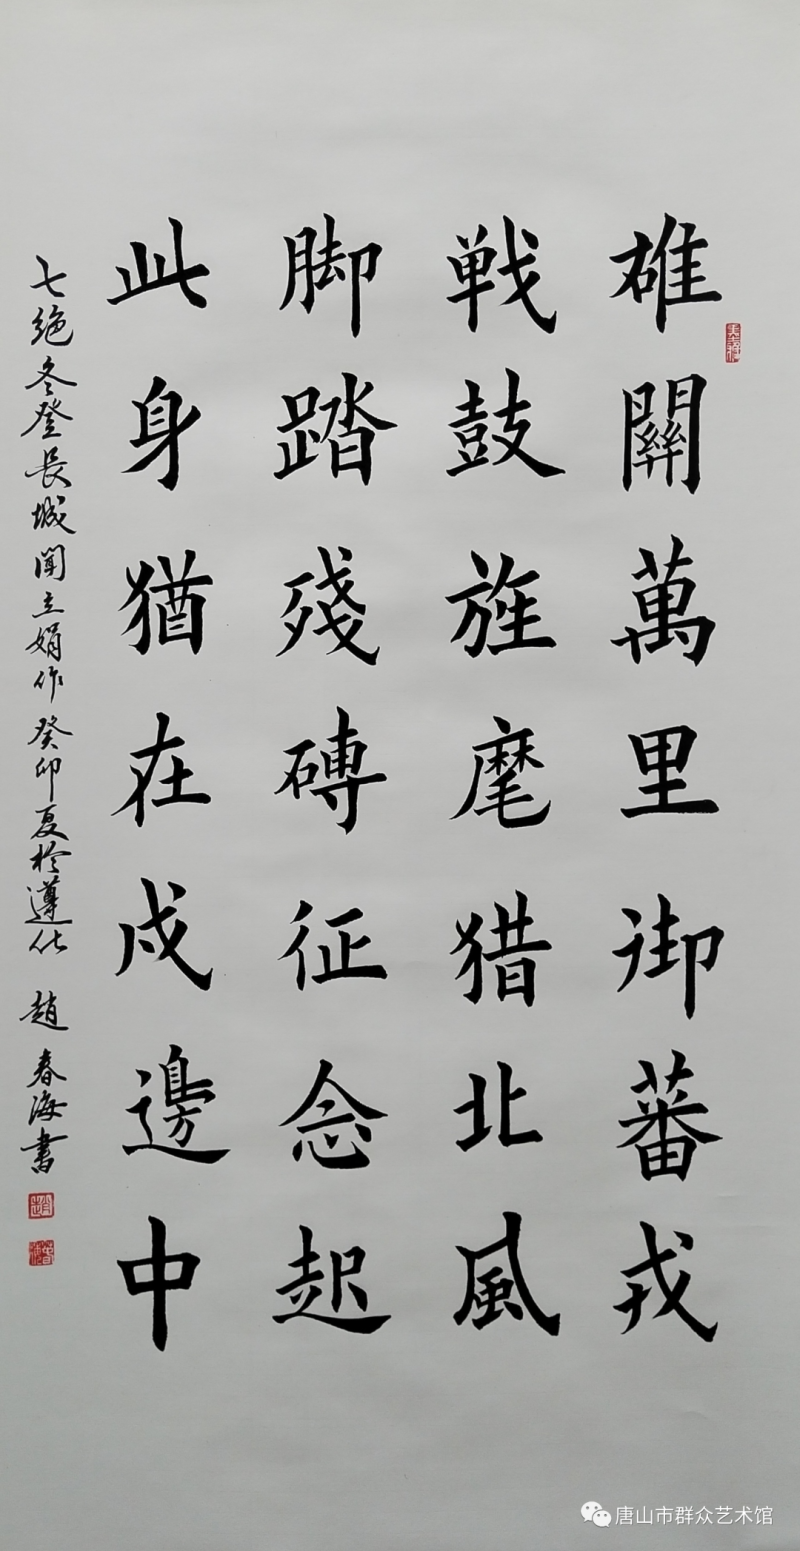 雄關萬里御蕃戎
戦鼓旌麾猎北風
脚踏殘磚征念起
此身猶在戍邊中
七绝冬登長城聞立娟作癸卯夏於遵化 趙春海書
唐山市群众艺术馆